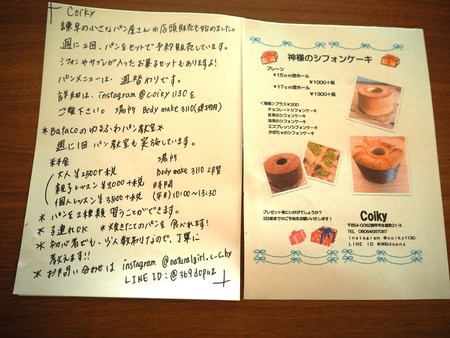 Coiky
諫早の小さなパン屋さん。店頭販売も始めました。
週に2回、パンをセットで予約販売しています。
シフォンやサブレが入ったお菓子セットもありますよ!
パンメニューは、週替わりです。
詳細は、instagram @coiky1130を
ご覧下さい。場所 Body make 3110(
*Bafacoのゆるふわパン教室*
週に1回 パン教室も実施しています。
料金 場所
大人 ¥2500+税 Body make 3110 2階
親子レッスン ¥3000+税 時間
個人レッスン ¥3500+税 (平日) 10:00~13:30
* パンを2種類 習うことができます。
* 子連れOK *焼きたてのパンを食べれます!
* 初心者でも、少人数制なので、丁寧に
教えます!!
* お問い合わせは instagram @naturalgirl.
LINE ID: @369dcpnz
神様のシフォンケーキ
プレーン
*15cm型ホール
¥1000+税
*17cm型ホール
¥1300+税
<種類>プラス¥200
チョコレートシフォンケーキ
紅茶のシフォンケーキ
抹茶のシフォンケーキ
エスプレッソシフォンケーキ
かぼちゃのシフォンケーキ
プレゼント等にいかがでしょうか?
3日前までのご予約をお願いします。
Coiky
〒854-0062諫早市
TEL 08064567067
instagram @coiky1130
LINE ID